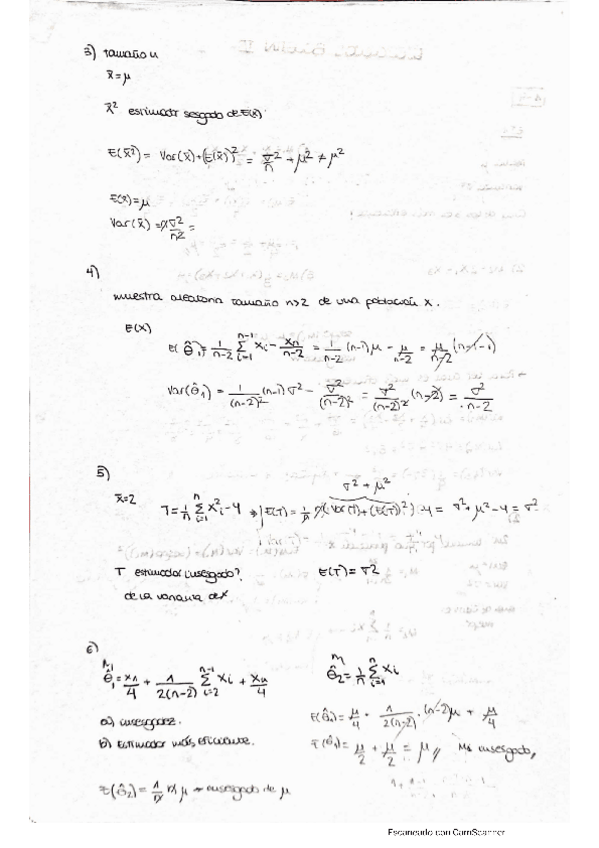 3) Tamaño n
x̄ = μ
x̄² estimador sesgado de E(x)
E(x̄²) = Var(x̄) + (E(x̄))² = σ²/n + μ² ≠ μ²
E(x̄) = μ
Var(x̄) = nσ²/n² =
4)
muestra aleatoria tamaño n>2 de una población X.
E(X)
E(θ̂₁) = 1/(n-2) Σ_{i=1}^{n-1} xi - xn/(n-2) = 1/(n-2) (n-1)μ - μ/(n-2) = μ/(n-2) (n-1-1)
Var(θ̂₁) = 1/(n-2)² (n-1)σ² - σ²/(n-2)² = σ²/(n-2)² (n-2) = σ²/(n-2)
5)
σ² + μ²
x̄=2 T = 1/n Σ_{i=1}^{n} xi² - 4 → E(T) = 1/n n(Var(T) + (E(T))²) - 4 = σ² + μ² - 4 = σ²
T estimador insesgado? E(T) = σ²
de la varianza de X
6)
θ̂₁ = x1/4 + 1/(2(n-2)) Σ_{i=2}^{n-1} xi + xn/4 θ̂₂ = 1/n Σ_{i=1}^{n} xi
a) insesgadez. E(θ̂₁) = μ/4 + 1/(2(n-2)) · (n-2)μ + μ/4
b) Estimador más eficiente. E(θ̂₁) = μ/2 + μ/2 = μ // insesgado,
E(θ̂₂) = 1/n n μ → insesgado de μ
Escaneado con CamScanner